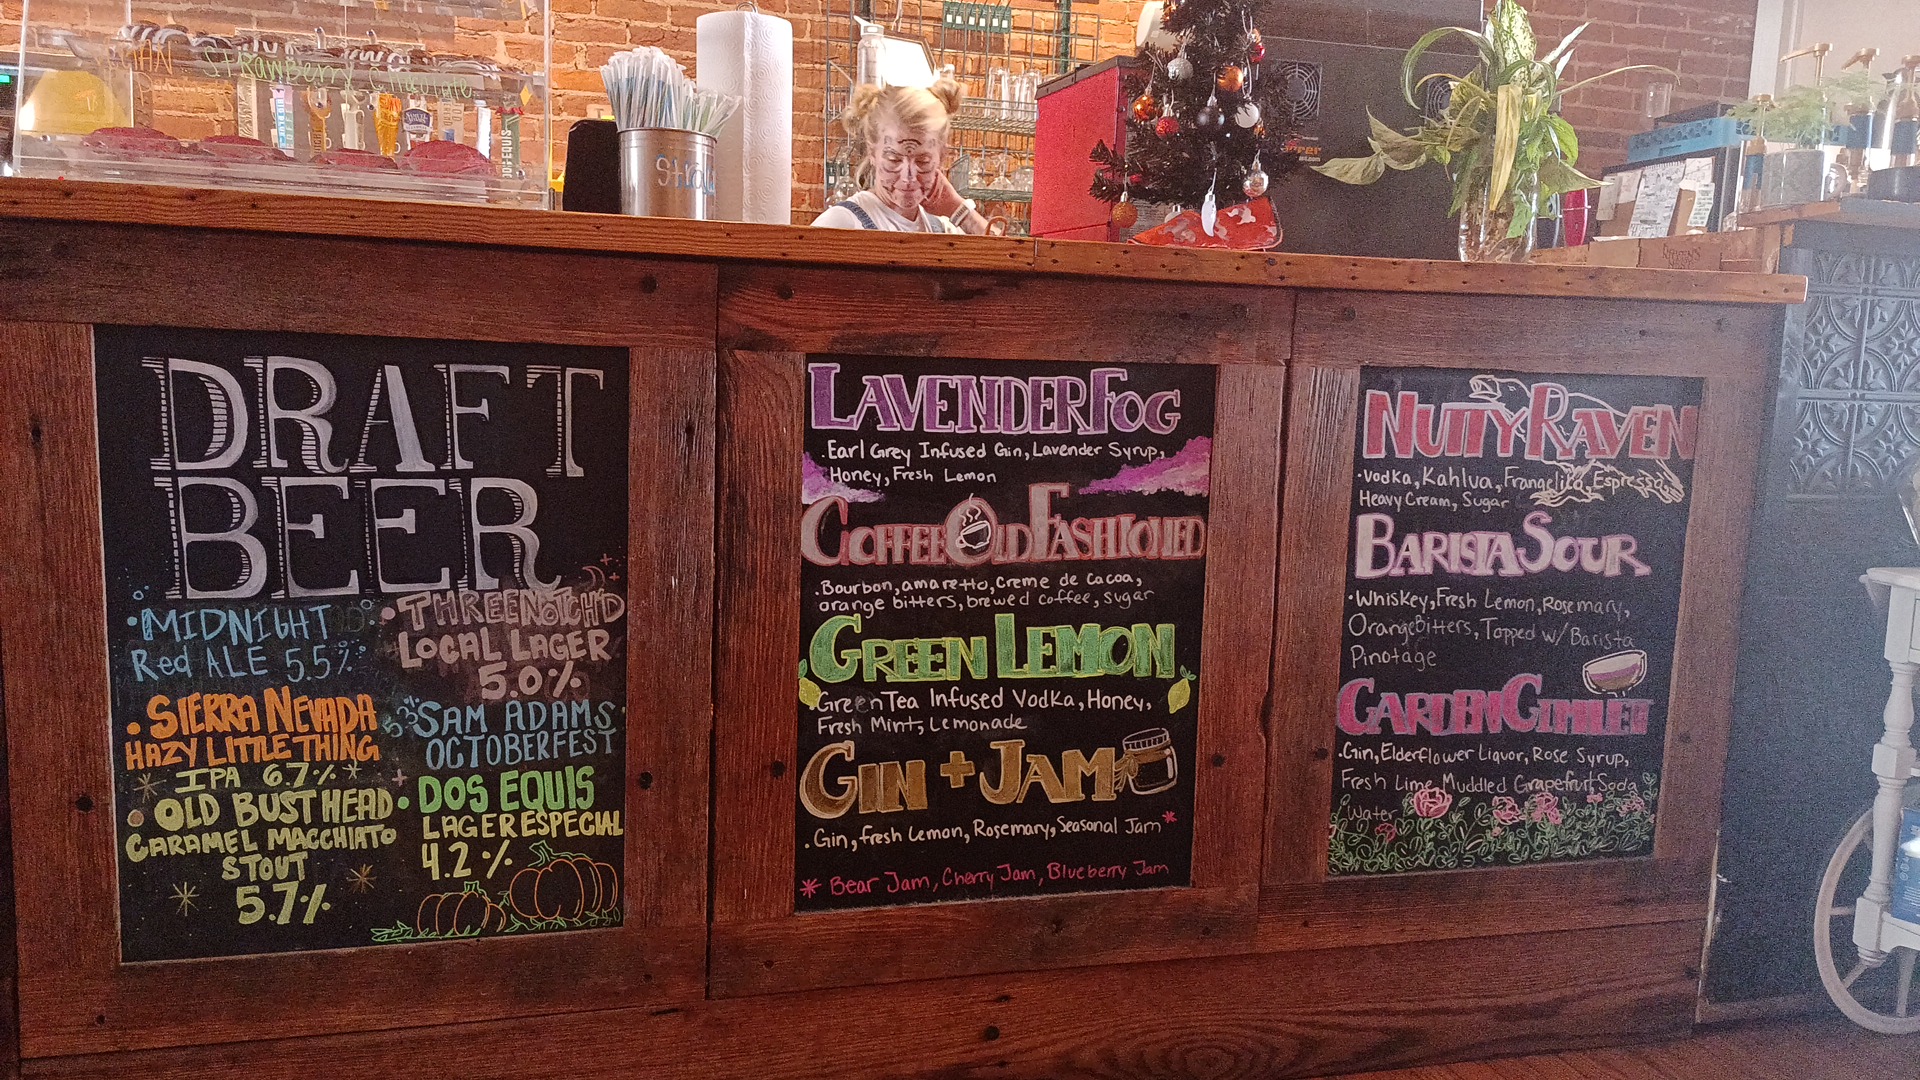 Strawberry Chocolate
DOS EQUIS
DRAFT
BEER
•MIDNIGHT
Red ALE 5.5%
•SIERRA NEVADA
HAZY LITTLE THING
IPA 6.7%
•OLD BUST HEAD
CARAMEL MACCHIATO
STOUT
5.7%
•THREE NOTCH'D
LOCAL LAGER
5.0%
5.3% SAM ADAMS
OCTOBERFEST
•DOS EQUIS
LAGER ESPECIAL
4.2%
LAVENDER FOG
.Earl Grey Infused Gin, Lavender Syrup,
Honey, Fresh Lemon
COFFEE OLD FASHIONED
.Bourbon, amaretto, creme de cacoa,
orange bitters, brewed coffee, sugar
GREEN LEMON
Green Tea Infused Vodka, Honey,
Fresh Mint, Lemonade
GIN + JAM
.Gin, fresh Lemon, Rosemary, Seasonal Jam*
* Bear Jam, Cherry Jam, Blueberry Jam
NUTTY RAVEN
•Vodka, Kahlua, Frangelico, Espresso,
Heavy Cream, Sugar
BARISTA SOUR
•Whiskey, Fresh Lemon, Rosemary,
Orange Bitters, Topped w/ Barista
Pinotage
GARDEN GIMLET
•Gin, Elderflower Liquor, Rose Syrup,
Fresh Lime, Muddled Grapefruit, Soda
Water